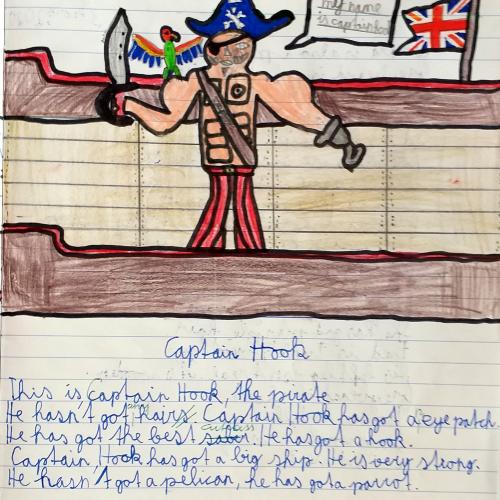 my name
is captain hook
Captain Hook
This is Captain Hook, the pirate.
He hasn't got any hairs. Captain Hook has got a eye patch.
He has got the best saber cutplass. He has got a hook.
Captain, Hook has got a big ship. He is very strong.
He hasn't got a pelican, he has got a parrot.